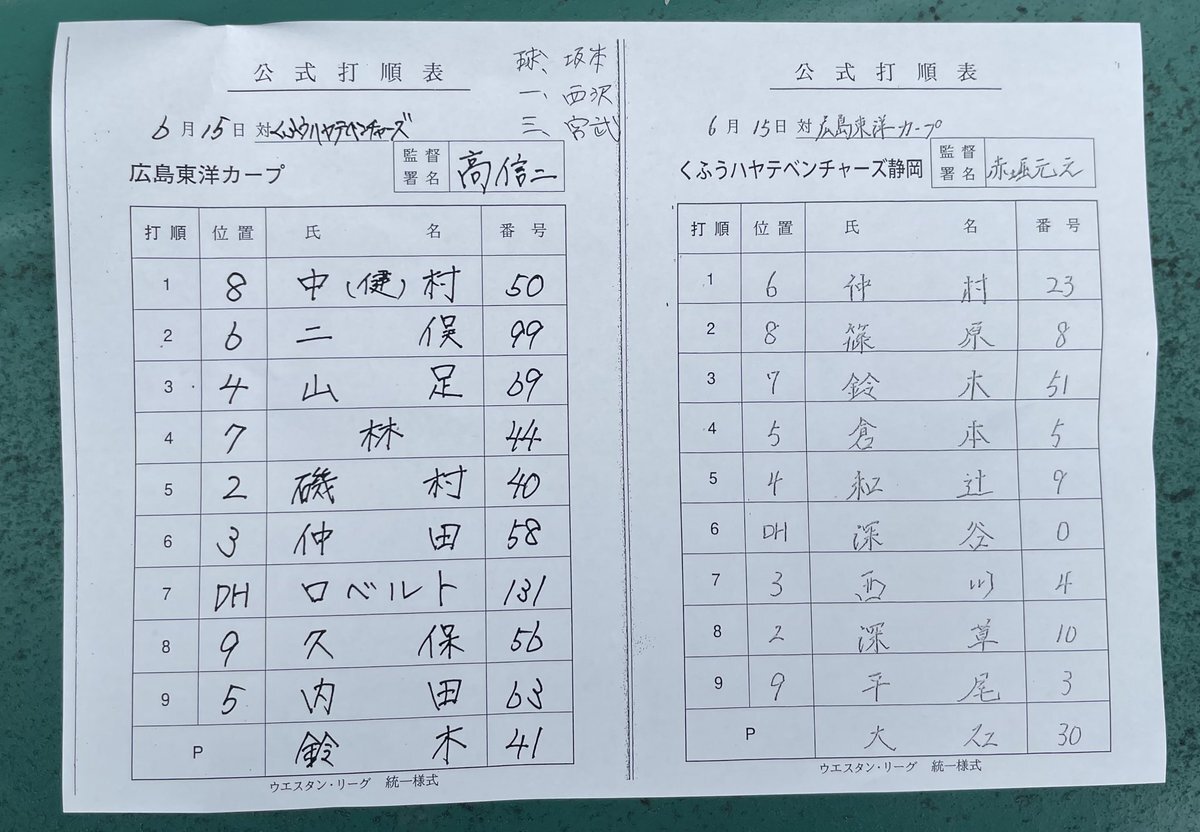 公式打順表
球、坂本
一、西沢
三、宮武
6月15日 対 くふうハヤテベンチャーズ
広島東洋カープ 監督署名 高信二
打順 位置 氏名 番号
1 8 中(健)村 50
2 6 二俣 99
3 4 山足 69
4 7 林 44
5 2 磯村 40
6 3 仲田 58
7 DH ロベルト 131
8 9 久保 56
9 5 内田 63
P 鈴木 41
ウエスタン・リーグ 統一様式
公式打順表
6月15日 対 広島東洋カープ
くふうハヤテベンチャーズ静岡 監督署名 赤堀元之
打順 位置 氏名 番号
1 6 仲村 23
2 8 篠原 8
3 7 鈴木 51
4 5 倉本 5
5 4 松辻 9
6 DH 深谷 0
7 3 西川 4
8 2 深草 10
9 9 平尾 3
P 大江 30
ウエスタン・リーグ 統一様式